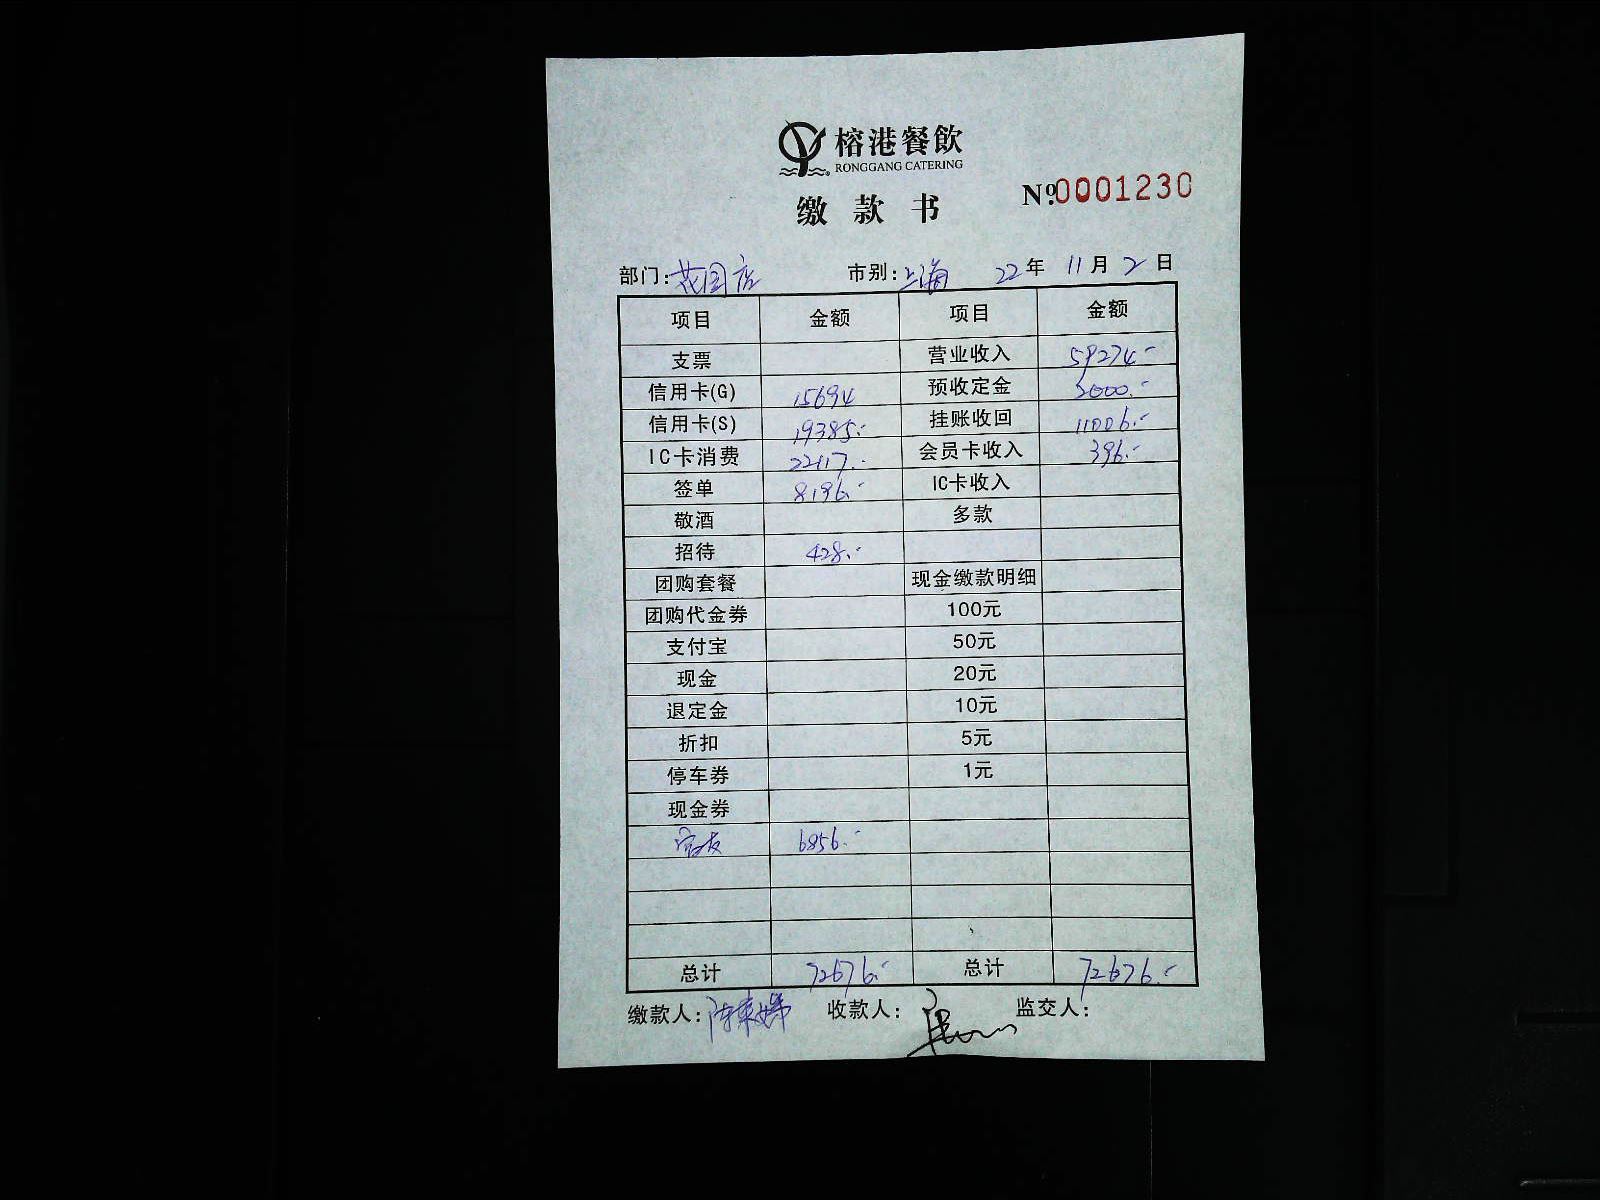 榕港餐飲
RONGGANG CATERING
缴款书
Nº.0001230
部门:花园店 市别:上海 22年 11月 2日
项目 金额 项目 金额
支票 营业收入 59274.-
信用卡(G) 15694 预收定金 2000.-
信用卡(S) 19385.- 挂账收回 11006.-
IC卡消费 22117.- 会员卡收入 396.-
签单 8196.- IC卡收入
敬酒 多款
招待 428.-
团购套餐 现金缴款明细
团购代金券 100元
支付宝 50元
现金 20元
退定金 10元
折扣 5元
停车券 1元
现金券
6856.-
总计 72676.- 总计 72676.-
缴款人: 收款人: 监交人: